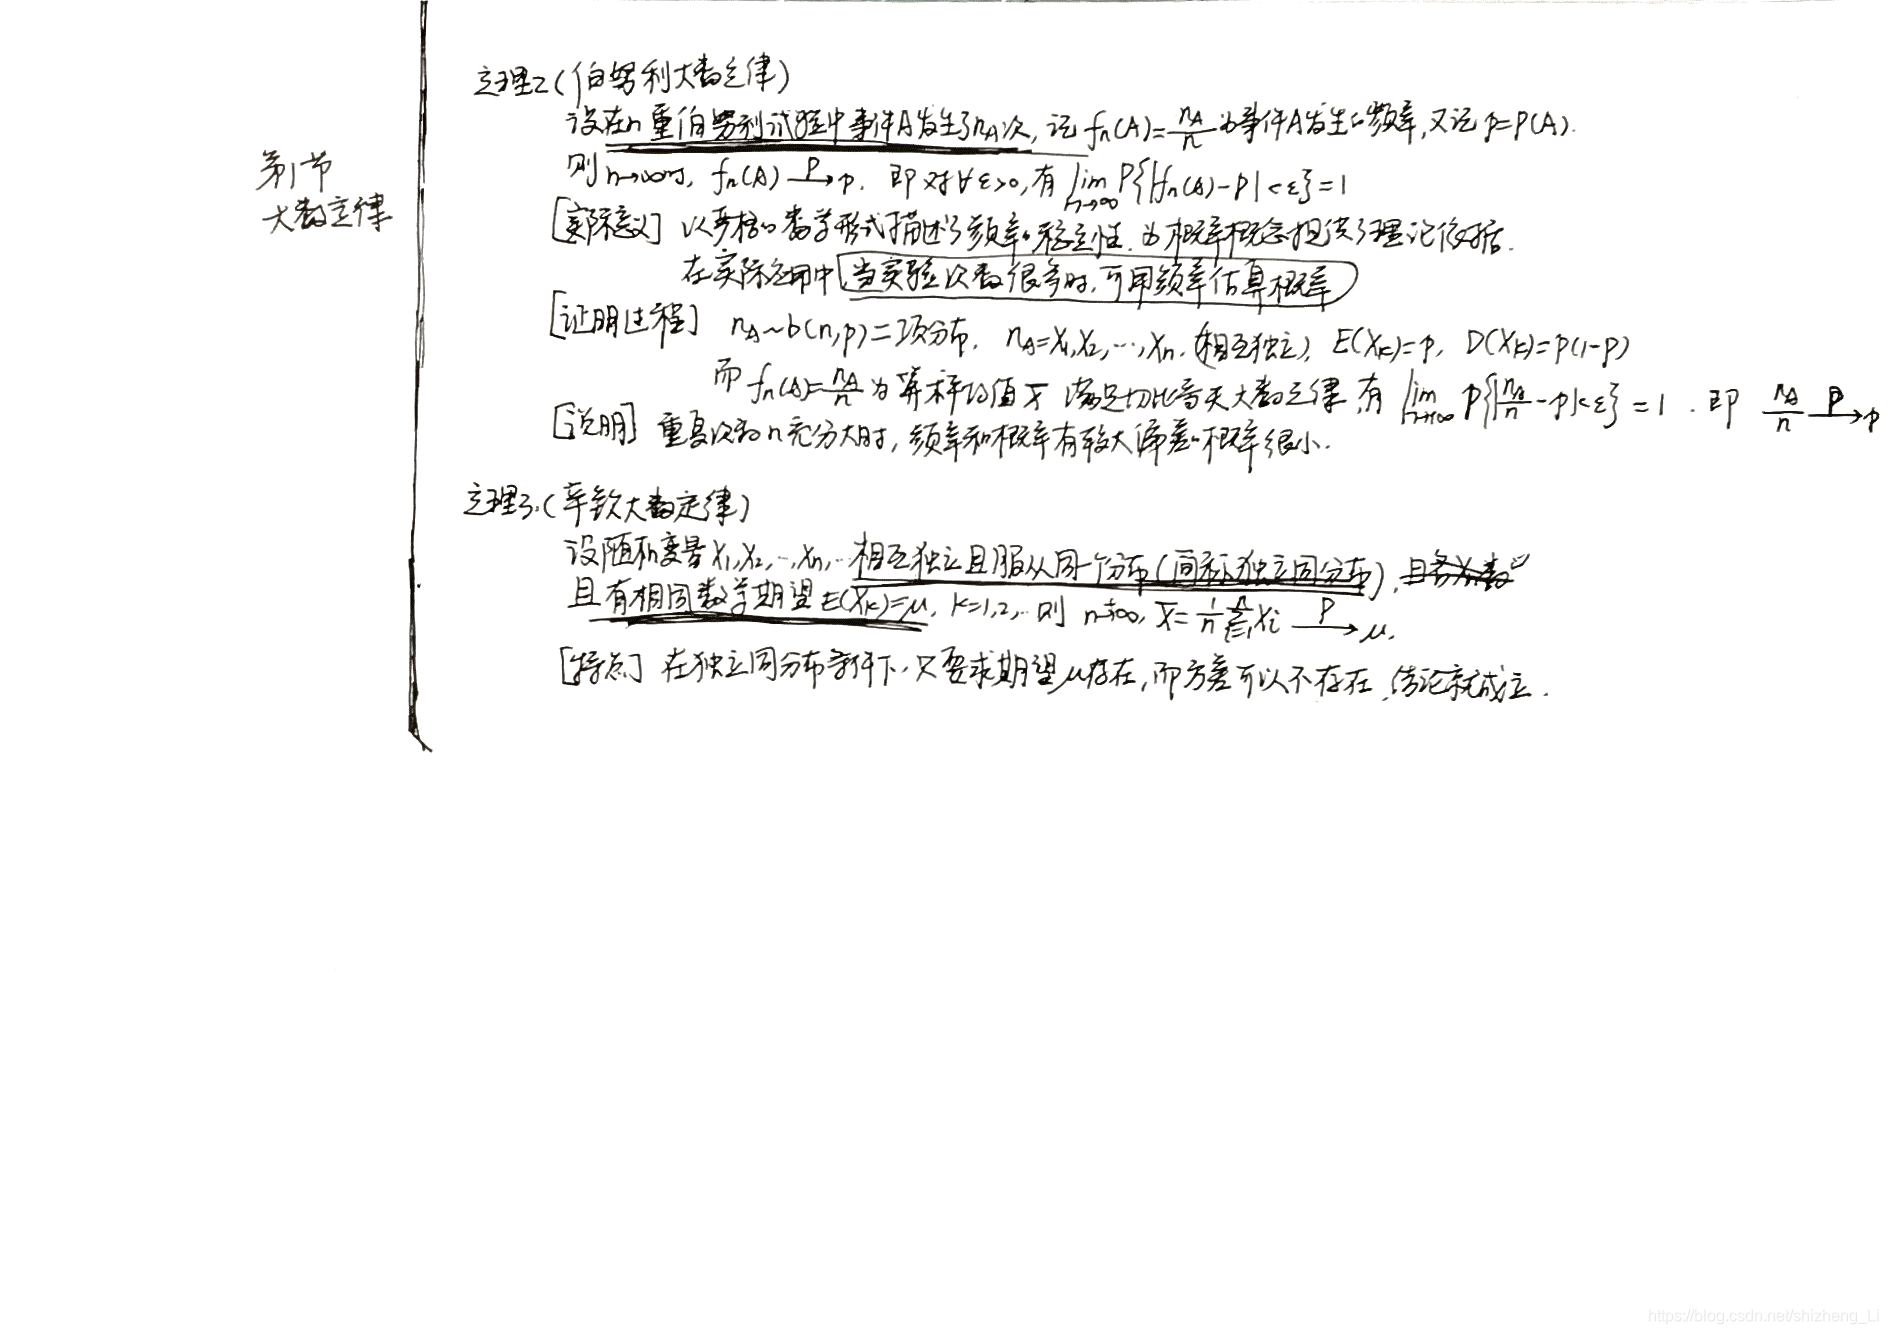 第1节
大数定律
定理2(伯努利大数定律)
设在n重伯努利试验中事件A发生了nA次, 记 fn(A)=nA/n 为事件A发生的频率, 又记 p=P(A).
则 n→∞时, fn(A) —P→ p. 即对∀ε>0, 有 lim n→∞ P{|fn(A)-p|<ε}=1
[实际意义] 以严格的数学形式描述了频率的稳定性. 为概率概念提供了理论依据.
在实际应用中 当实验次数很多时, 可用频率估算概率
[证明过程] nA~b(n,p)二项分布. nA=X1,X2,…,Xn. (相互独立), E(XK)=p, D(XK)=p(1-p)
而 fn(A)=nA/n 为算术均值 X̄ 满足切比雪夫大数定律, 有 lim n→∞ P{|nA/n-p|<ε}=1. 即 nA/n —P→ p
[说明] 重复次数n充分大时, 频率和概率有较大偏差的概率很小.
定理3.(辛钦大数定律)
设随机变量X1,X2,…,Xn,…相互独立且服从同一个分布(简称独立同分布),
且有相同数学期望E(XK)=μ, K=1,2,… 则 n→∞, X̄=1/n Σ i=1 n Xi —P→ μ.
[特点] 在独立同分布条件下, 只要求期望μ存在, 而方差可以不存在, 结论就成立.
https://blog.csdn.net/shizheng_Li